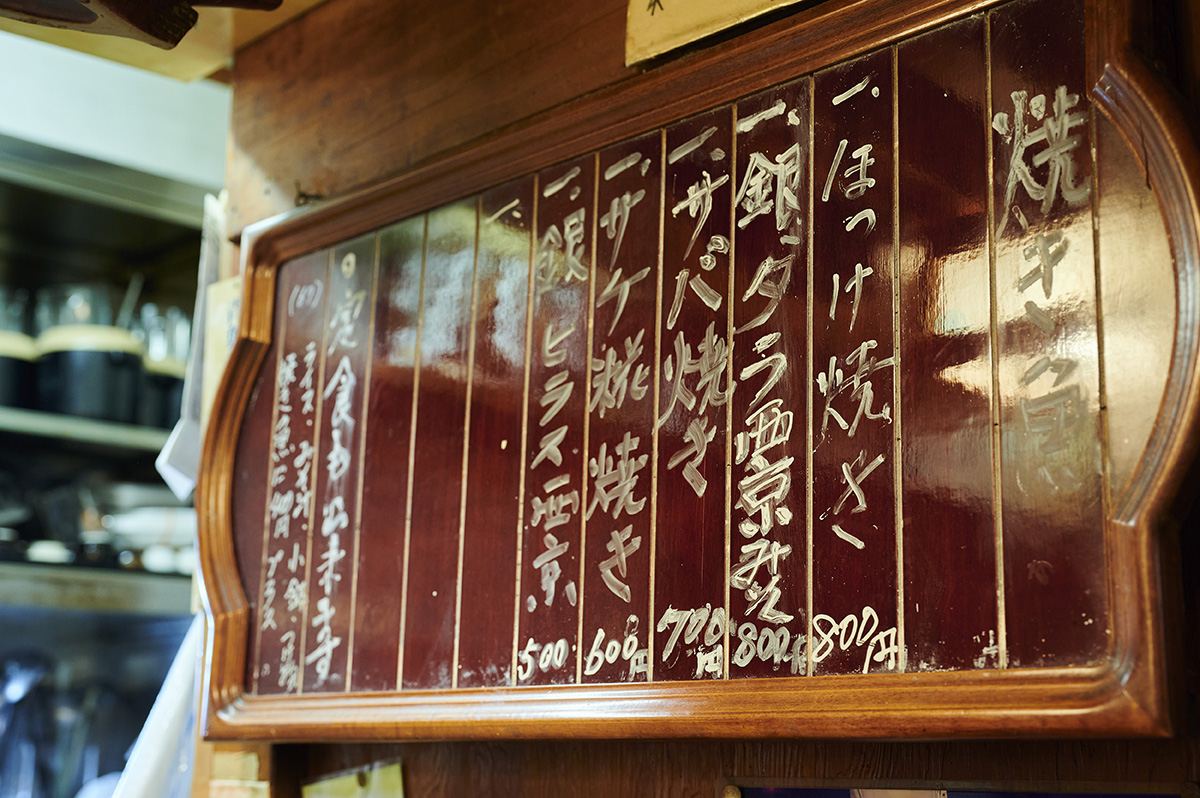 焼き魚
一、ほっけ焼き 800円
一、銀ダラ西京みそ 800円
一、サバ焼き 700円
一、サケ糀焼き 600円
一、銀ヒラス西京 500
一、
定食も出来ます
ライス、みそ汁、小鉢、